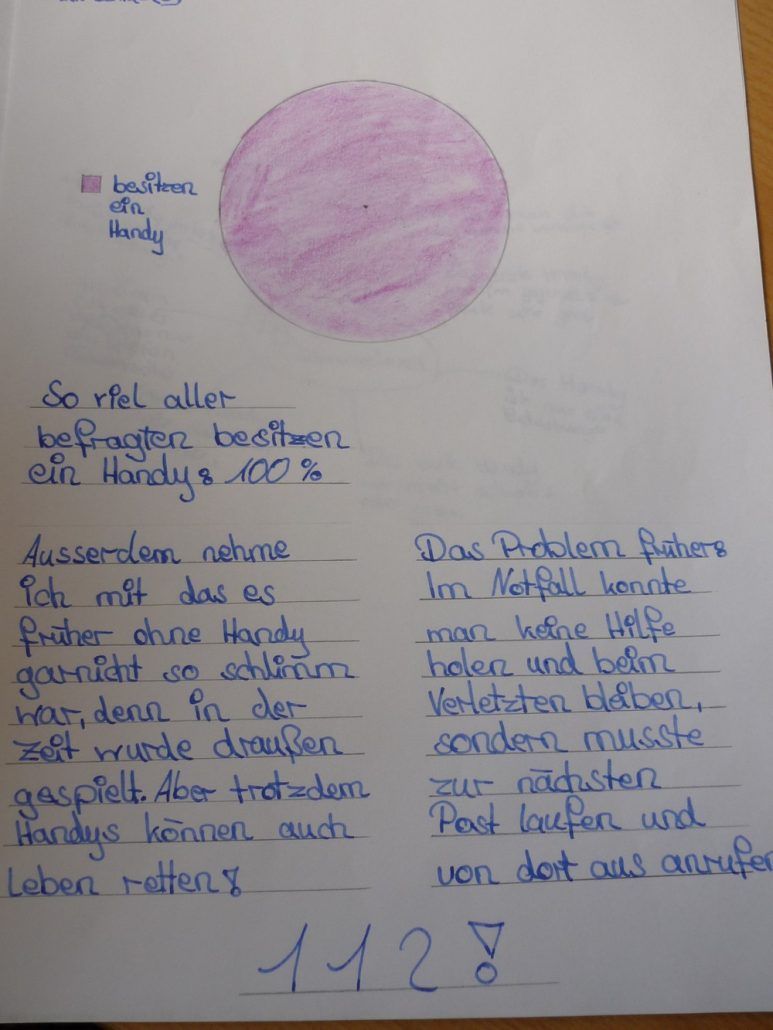 besitzen
ein
Handy
So viel aller
befragten besitzen
ein Handy: 100 %
Ausserdem nehme
ich mit das es
früher ohne Handy
garnicht so schlimm
war, denn in der
Zeit wurde draußen
gespielt. Aber trotzdem
Handys können auch
Leben retten!
Das Problem früher:
Im Notfall konnte
man keine Hilfe
holen und beim
Verletzten bleiben,
sondern musste
zur nächsten
Post laufen und
von dort aus anrufen
112!